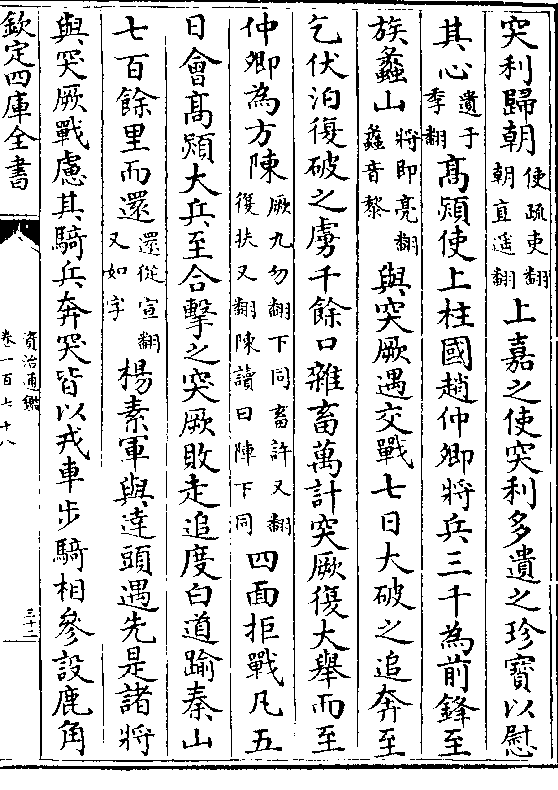 突利歸朝使疏吏翻朝直遥翻上嘉之使突利多遺之珍寶以慰
其心遺于季翻高熲使上柱國趙仲卿將兵三千為前鋒至
族蠡山將即亮翻蠡音黎與突厥遇交戰七日大破之追奔至
乞伏泊復破之虜千餘口雜畜萬計突厥復大舉而至
仲卿為方陳厥九勿翻下同畜許又翻復扶又翻陳讀曰陣下同四面拒戰凡五
日會高熲大兵至合擊之突厥敗走追度白道踰秦山
七百餘里而還還從宣翻又如字楊素軍與達頭遇先是諸將
與突厥戰慮其騎兵奔突皆以戎車步騎相參設鹿角
欽定四庫全書
資治通鑑
卷一百七十八
三十二